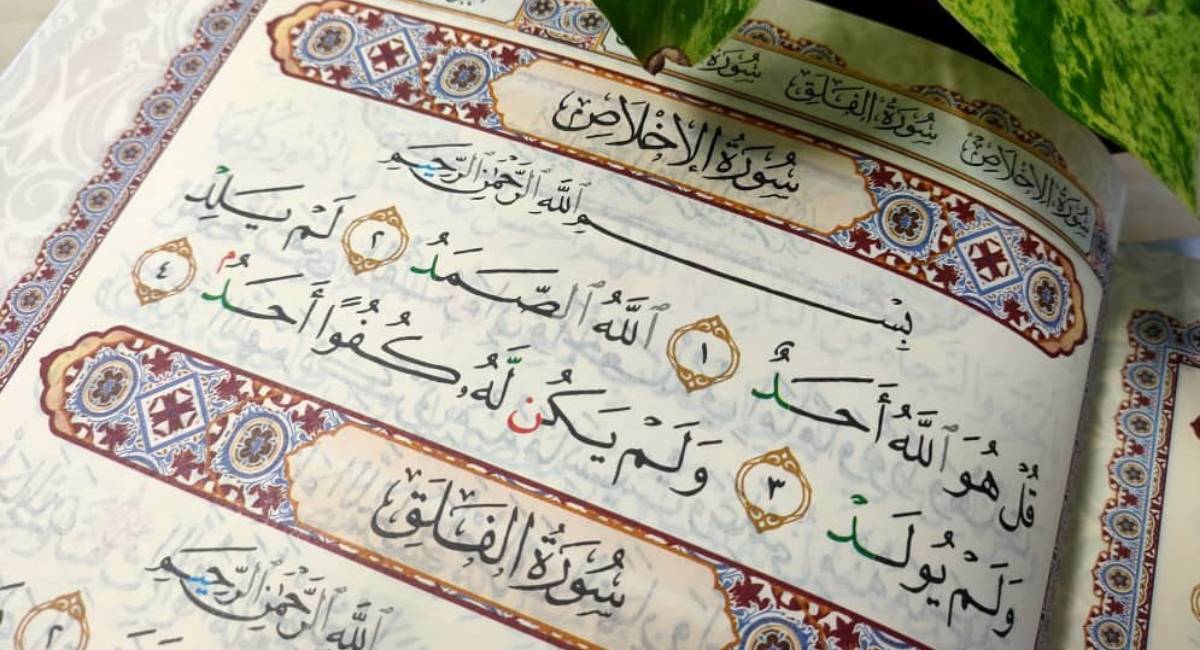 سُورَةُ الإِخْلَاصِ سُورَةُ الفَلَقِ سُورَةُ
سُورَةُ الإِخْلَاصِ
بِسْمِ ٱللَّهِ ٱلرَّحْمَٰنِ ٱلرَّحِيمِ
قُلْ هُوَ ٱللَّهُ أَحَدٌ ١ ٱللَّهُ ٱلصَّمَدُ ٢ لَمْ يَلِدْ
وَلَمْ يُولَدْ ٣ وَلَمْ يَكُن لَّهُۥ كُفُوًا أَحَدٌۢ ٤
سُورَةُ الفَلَقِ
ٱللَّهِ ٱلرَّحْمَٰنِ ٱلرَّحِيمِ
٢